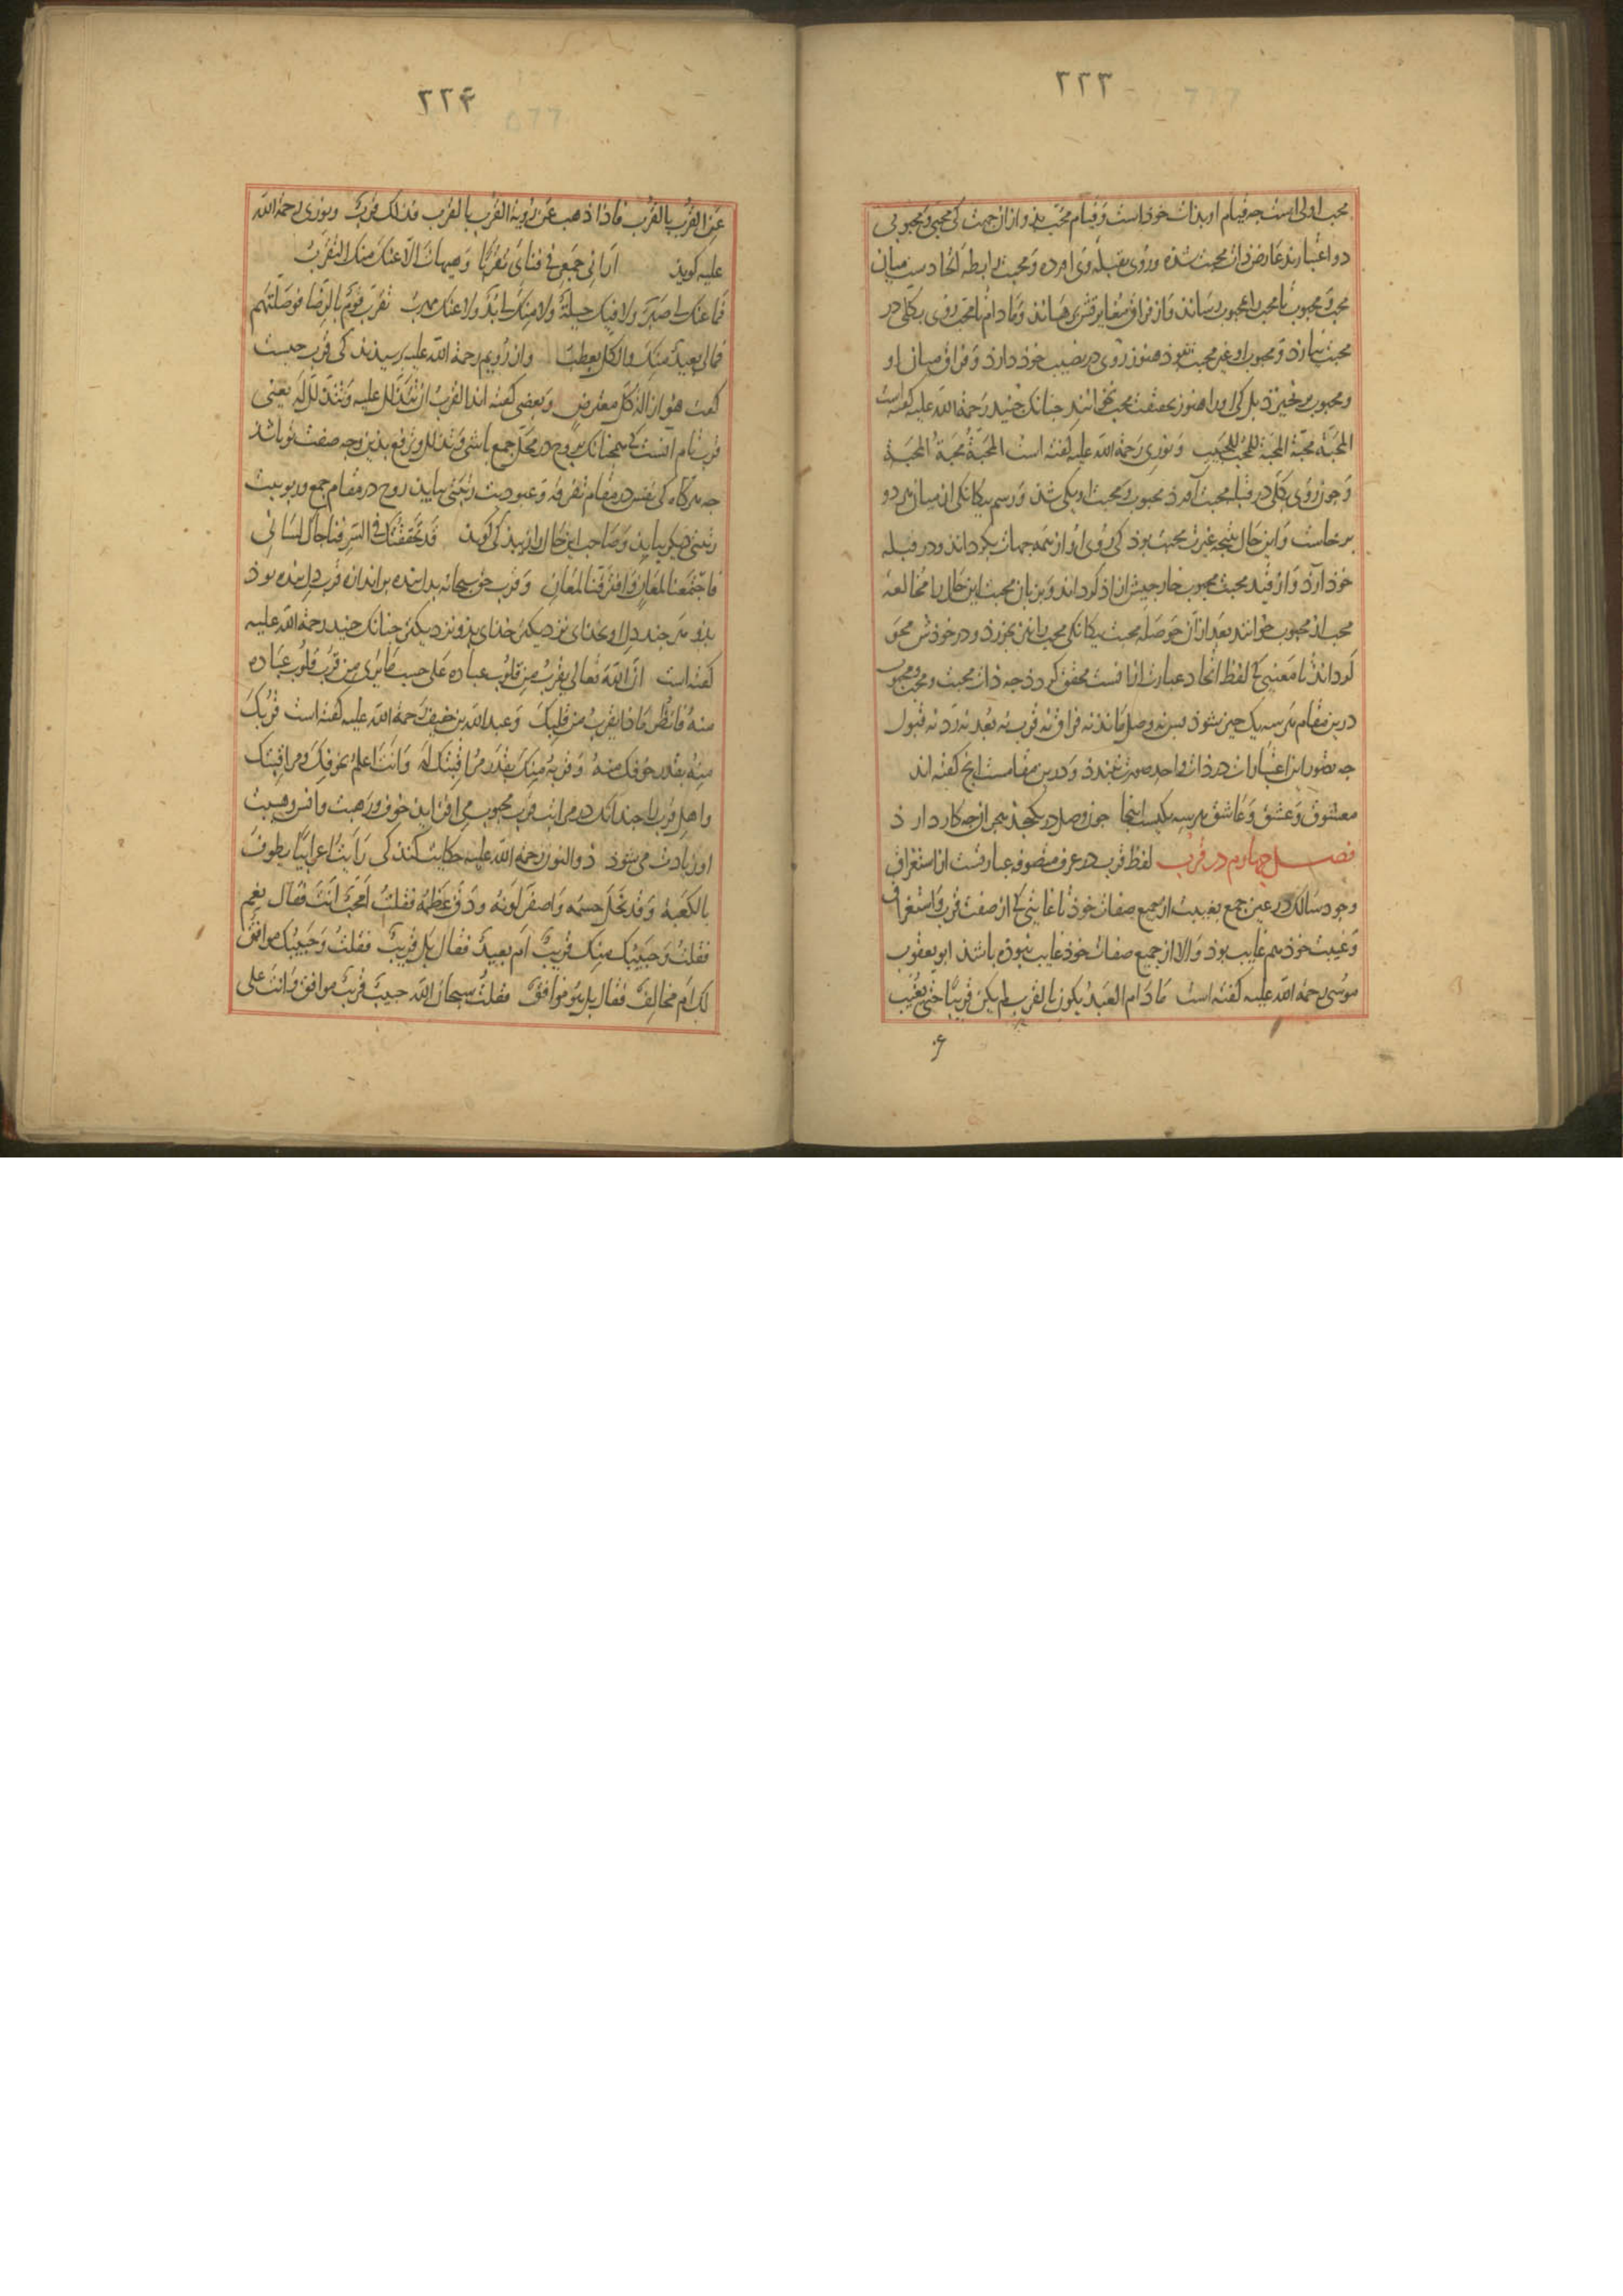 ٢٢٣
محب اولی است چه قیام او بذات خوذ است وقیام محب بذو واز ان جهت کی محبی ومحبوبی
دو اعتبارند عارض ذات محبت شده وروی بقبلۀ وی اورده ومحبت رابطه اتحادست میان
محب ومحبوب تا محب را بمحبوب رساند واز فراق مغایرتش برهاند ومادام تا محب روی بکلی در
محبت نیارذ ومحبوب او غیر محبت نبوذ هنوز روی در نصیب خوذ دارذ وفراق میان او
ومحبوب برنخیزذ بل کی او را هنوز بحقیقت محب نخوانند چنانک جنید رحمة الله علیه گفته است
المحبة محبة المحبة للمحب للحبیب ونوری رحمة الله علیه گفته است المحبة محبة المحبة
وچون روی بکلی در قبله محبت آورد محبوب ومحبت او یکی شذ ورسم بیکانکی از میان هر دو
برخاست واین حال نتیجه غیرت محبت بوذ کی روی او از همه جهات بکرداند ودر قبله
خوذ آرذ واز قید محبت محبوب خارجیش ازاد کرداند وبزبان محبت این حال را مخالعه
محب از محبوب خوانند بعد از آن حوصله محبت بیکانکی محب را نیز بخورذ ودر خوذش محو
کرداند تا معنیی کی لفظ اتحاد عبارت ازانست محقق کردذ چه ذات محبت ومحب ومحبوب
درین مقام هر سه یک چیز شوذ پس نه وصل ماند نه فراق نه قرب نه بعد نه رد نه قبول
چه تصور این اعتبارات در ذات واحد صورت نبندذ ودرین مقامست انچ گفته اند
معشوق وعشق وعاشق هر سه یکیست اینجا چون وصل در نکنجذ هجران چه کار دارذ
فصل چهارم در قرب لفظ قرب در عرف متصوفه عبارتست از استغراق
وجود سالک در عین جمع بغیبت از جمیع صفات خوذ تا غایتی کی از صفت قرب واستغراق
وغیبت خوذ هم غایب بوذ والا از جمیع صفات خوذ غایب نبوده باشذ ابو یعقوب
سوسی رحمة الله علیه گفته است مادام العبد یکون بالقرب لم یکن قریبا حتی یغیب
٢٢۴
عن القرب بالقرب فاذا ذهب عن رؤیة القرب بالقرب فذلک قرب ونوری رحمة الله
علیه کوید ارانی جمعی فی فنای تقربا وهیهات الا عنک منک التقرب
فما عنک لی صبر ولا فیک حیلة ولا منک لی بد ولا عنک مهرب تقرب قوم بالرضا فوصلتهم
فمالی بعید منک والکل یعطب واز رویم رحمة الله علیه پرسیذند کی قرب چیست
گفت هو ازالة کل معترض وبعضی گفته اند القرب ان تتدلل علیه وتتذلل له یعنی
قرب تام آنست کی همچنانک بروح در محل جمع باشی وتذلل وترفع بذین وجه صفت تو باشذ
چه هرکاه کی نفس در مقام تفرقه وعبودیت رتبتی بیابد روح در مقام جمع وربوبیت
رتبتی دیکر بیابد وصاحب این حال را رسذ کی کوید قد تحققتک فی السر فناجاک لسانی
فاجتمعنا لمعان وافترقنا لمعان وقرب حق سبحانه بدل بنده بر اندازه قرب دل بنده بوذ
بذو هر چند دل او بخدای نزدیکتر خدای بذو نزدیکتر چنانک جنید رحمة الله علیه
گفته است ان الله تعالی یقرب من قلوب عباده علی حسب ما یری من قرب قلوب عباده
منه فانظر ماذا یقرب من قلبک وعبد الله بن خفیف رحمة الله علیه گفته است قربک
منه بقدر خوفک منه وقربه منک بقدر مراقبتک له وانت اعلم بخوفک ومراقبتک
واهل قرب را چندانک در مراتب قرب محبوب می افزاید خوف ورهبت وانس وهیبت
او زیادت می شوذ ذو النون رحمة الله علیه حکایت کند کی رایت اعرابیا یطوف
بالکعبة وقد نحل جسمه واصفر لونه ودق عظمه فقلت امحب انت فقال نعم
فقلت وحبیبک منک قریب ام بعید فقال بل قریب فقلت وحبیبک موافق
لک ام مخالف فقال بل هو موافق فقلت سبحان الله حبیب قریب موافق وانت علی